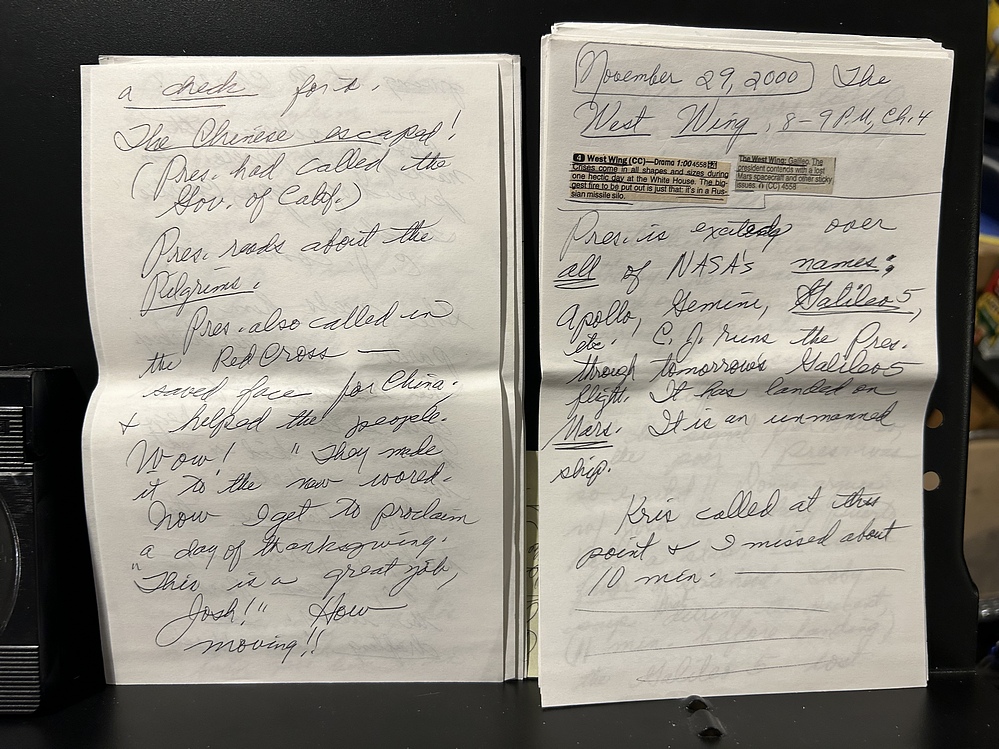 a check for it.
The Chinese escaped!
(Pres. had called the
Gov. of Calif.)
Pres. reads about the
Pilgrims.
Pres. also called in
the Red Cross —
saved face for China.
& helped the people.
Wow! "They made
it to the new world.
Now I get to proclaim
a day of thanksgiving.
"This is a great job,
Josh!" How
moving!!
November 29, 2000 The
West Wing, 8-9 P.M., Ch. 4
4 West Wing (CC)—Drama 1:00 4558
Crises come in all shapes and sizes during
one hectic day at the White House. The big-
gest fire to be put out is just that: it's in a Rus-
sian missile silo.
The West Wing: Galileo. The
president contends with a lost
Mars spacecraft and other sticky
issues. (CC) 4558
Pres. is excited over
all of NASA's names:
Apollo, Gemini, Galileo 5,
etc. C.J. runs the Pres.
through tomorrow's Galileo 5
flight. It has landed on
Mars. It is an unmanned
ship.
Kris called at this
point & I missed about
10 min.